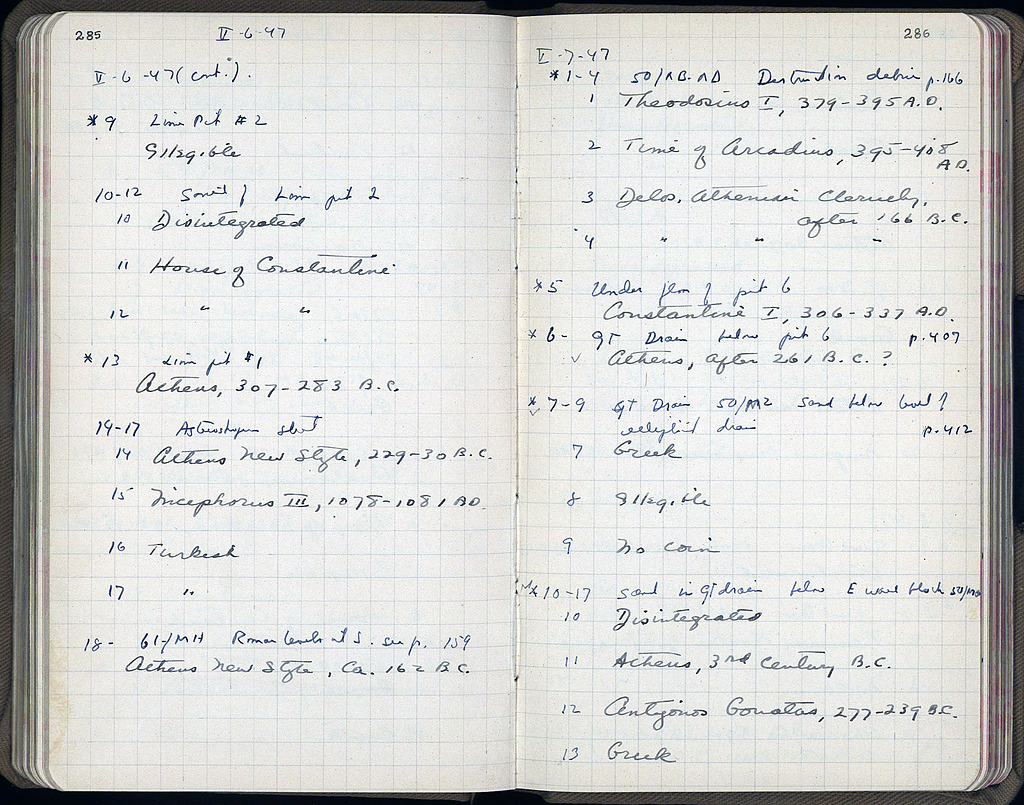 285
V-6-47
V-6-47 (cont.).
*9 Lime Pit #2
Illegible
10-12 Lime pit 2
10 Disintegrated
11 House of Constantine
12 " "
*13 Lime pit #1
Athens, 307-283 B.C.
14-17
14 Athens New Style, 229-30 B.C.
15 Nicephorus III, 1078-1081 AD.
16 Turkish
17 "
18- 61/MH Roman levels at S. see p. 159
Athens New Style, Ca. 162 B.C.
286
V-7-47
*1-4 50/ΛB.ΛΔ Destruction debris p.166
1 Theodosius I, 379-395 A.D.
2 Time of Arcadius, 395-408
A.D.
3 Delos, Athenian Cleruchy,
after 166 B.C.
4 " " "
*5 Under floor of pit 6
Constantine I, 306-337 A.D.
*6- GT Drain below pit 6 p.407
✓ Athens, after 261 B.C.?
*7-9 GT Drain 50/ΛΛ2 Sand below level of
✓ drain p.412
7 Greek
8 Illegible
9 No coin
*10-17 Sand in GT drain below E block
10 Disintegrated
11 Athens, 3rd Century B.C.
12 Antigonos Gonatas, 277-239 B.C.
13 Greek